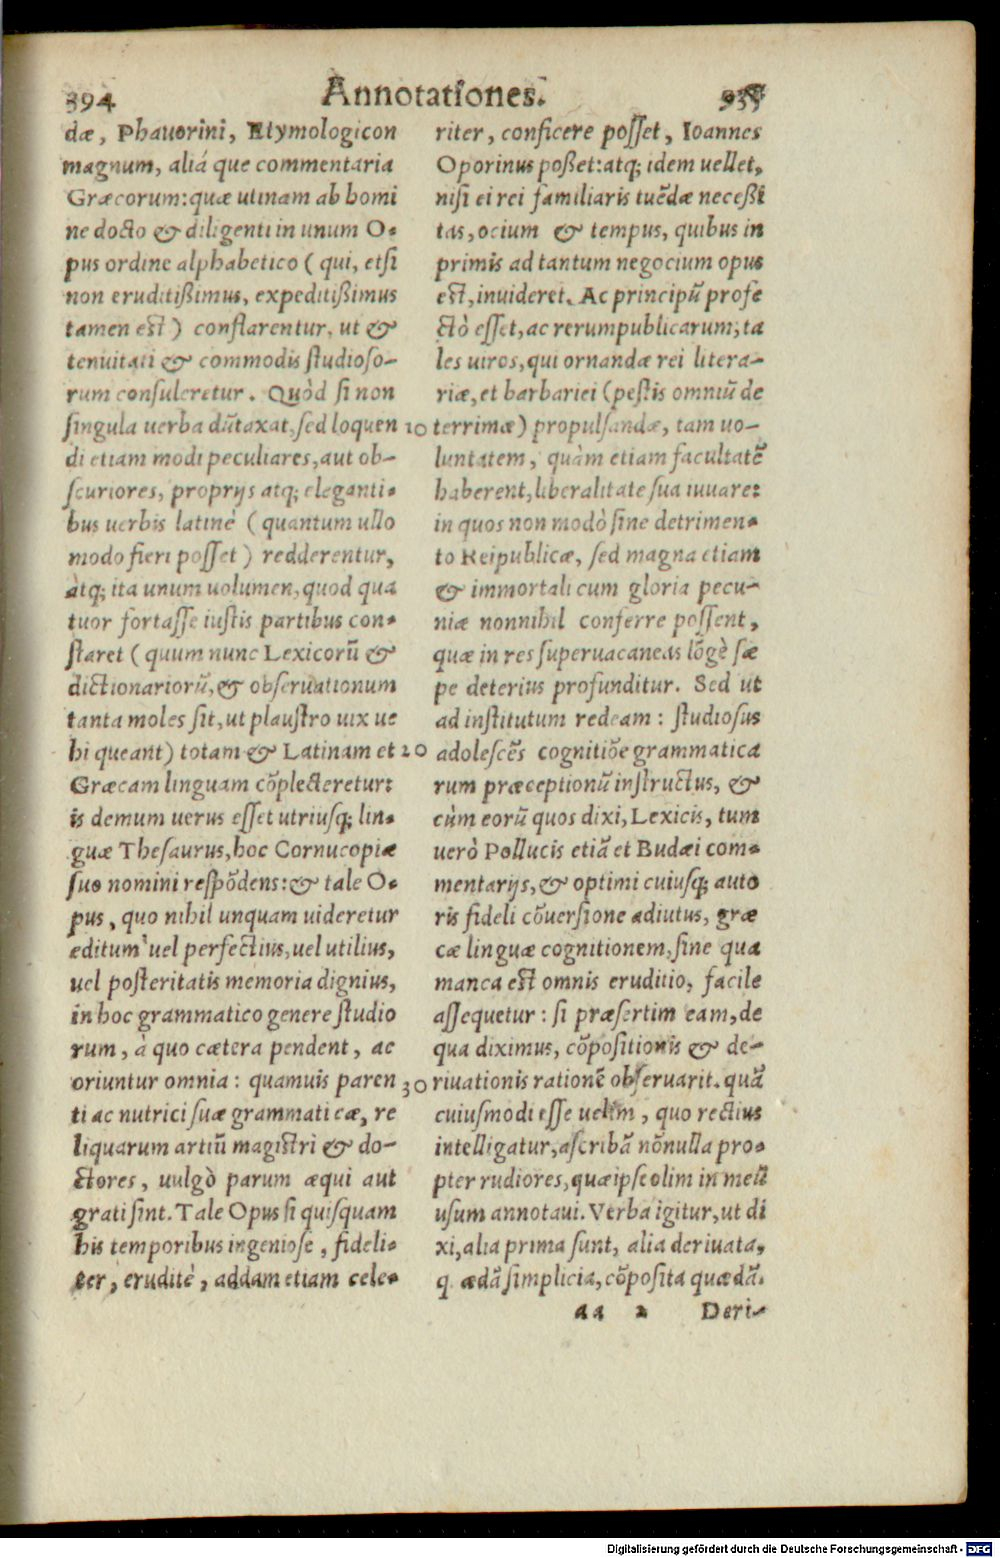 394 Annotationes.
dæ, Phauorini, Etymologicon
magnum, aliáque commentaria
Græcorum: quæ utinam ab homi
ne docto & diligenti in unum O-
pus ordine alphabetico (qui, etsi
non eruditißimus, expeditißimus
tamen est) conflarentur, ut &
tenuitati & commodis studioso-
rum consuleretur. Quòd si non
singula uerba dũtaxat, sed loquen
di etiam modi peculiares, aut ob-
scuriores, proprijs atq; eleganti-
bus uerbis latinè (quantum ullo
modo fieri posset) redderentur,
atq; ita unum uolumen, quod qua
tuor fortasse iustis partibus con-
staret (quum nunc Lexicorũ &
dictionariorũ, & obseruationum
tanta moles sit, ut plaustro uix ue
hi queant) totam & Latinam et
Græcam linguam cõplecteretur:
is demum uerus esset utriusq; lin-
guæ Thesaurus, hoc Cornucopiæ
suo nomini respõdens: & tale O-
pus, quo nihil unquam uideretur
æditum uel perfectius, uel utilius,
uel posteritatis memoria dignius,
in hoc grammatico genere studio
rum, à quo cætera pendent, ac
oriuntur omnia: quamuis paren
ti ac nutrici suæ grammaticæ, re
liquarum artiũ magistri & do-
ctores, uulgò parum æqui aut
grati sint. Tale Opus si quisquam
his temporibus ingeniose, fideli-
ter, eruditè, addam etiam cele-
10
20
30
riter, conficere posset, Ioannes
Oporinus poßet: atq; idem uellet,
nisi ei rei familiaris tuẽdæ neceßi
tas, ocium & tempus, quibus in
primis ad tantum negocium opus
est, inuideret. Ac principũ profe
ctò esset, ac rerumpublicarum, ta
les uiros, qui ornandæ rei litera-
riæ, et barbariei (pestis omniũ de
terrimæ) propulsandæ, tam uo-
luntatem, quàm etiam facultatẽ
haberent, liberalitate sua iuuare:
in quos non modò sine detrimen-
to Reipublicæ, sed magna etiam
& immortali cum gloria pecu-
niæ nonnihil conferre possent,
quæ in res superuacaneas lõgè sæ
pe deterius profunditur. Sed ut
ad institutum redeam: studiosus
adolescẽs cognitiõe grammatica
rum præceptionũ instructus, &
cùm eorũ quos dixi, Lexicis, tum
uerò Pollucis etiã et Budæi com-
mentarijs, & optimi cuiusq; auto
ris fideli cõuersione adiutus, græ
cæ linguæ cognitionem, sine qua
manca est omnis eruditio, facile
assequetur: si præsertim eam, de
qua diximus, cõpositionis & de-
riuationis rationẽ obseruarit. quã
cuiusmodi esse uelim, quo rectius
intelligatur, ascribã nõnulla pro-
pter rudiores, quæ ipse olim in meũ
usum annotaui. Verba igitur, ut di
xi, alia prima sunt, alia deriuata,
q ædã simplicia, cõposita quædã.
aa 2 Deri-
Digitalisierung gefördert durch die Deutsche Forschungsgemeinschaft - DFG